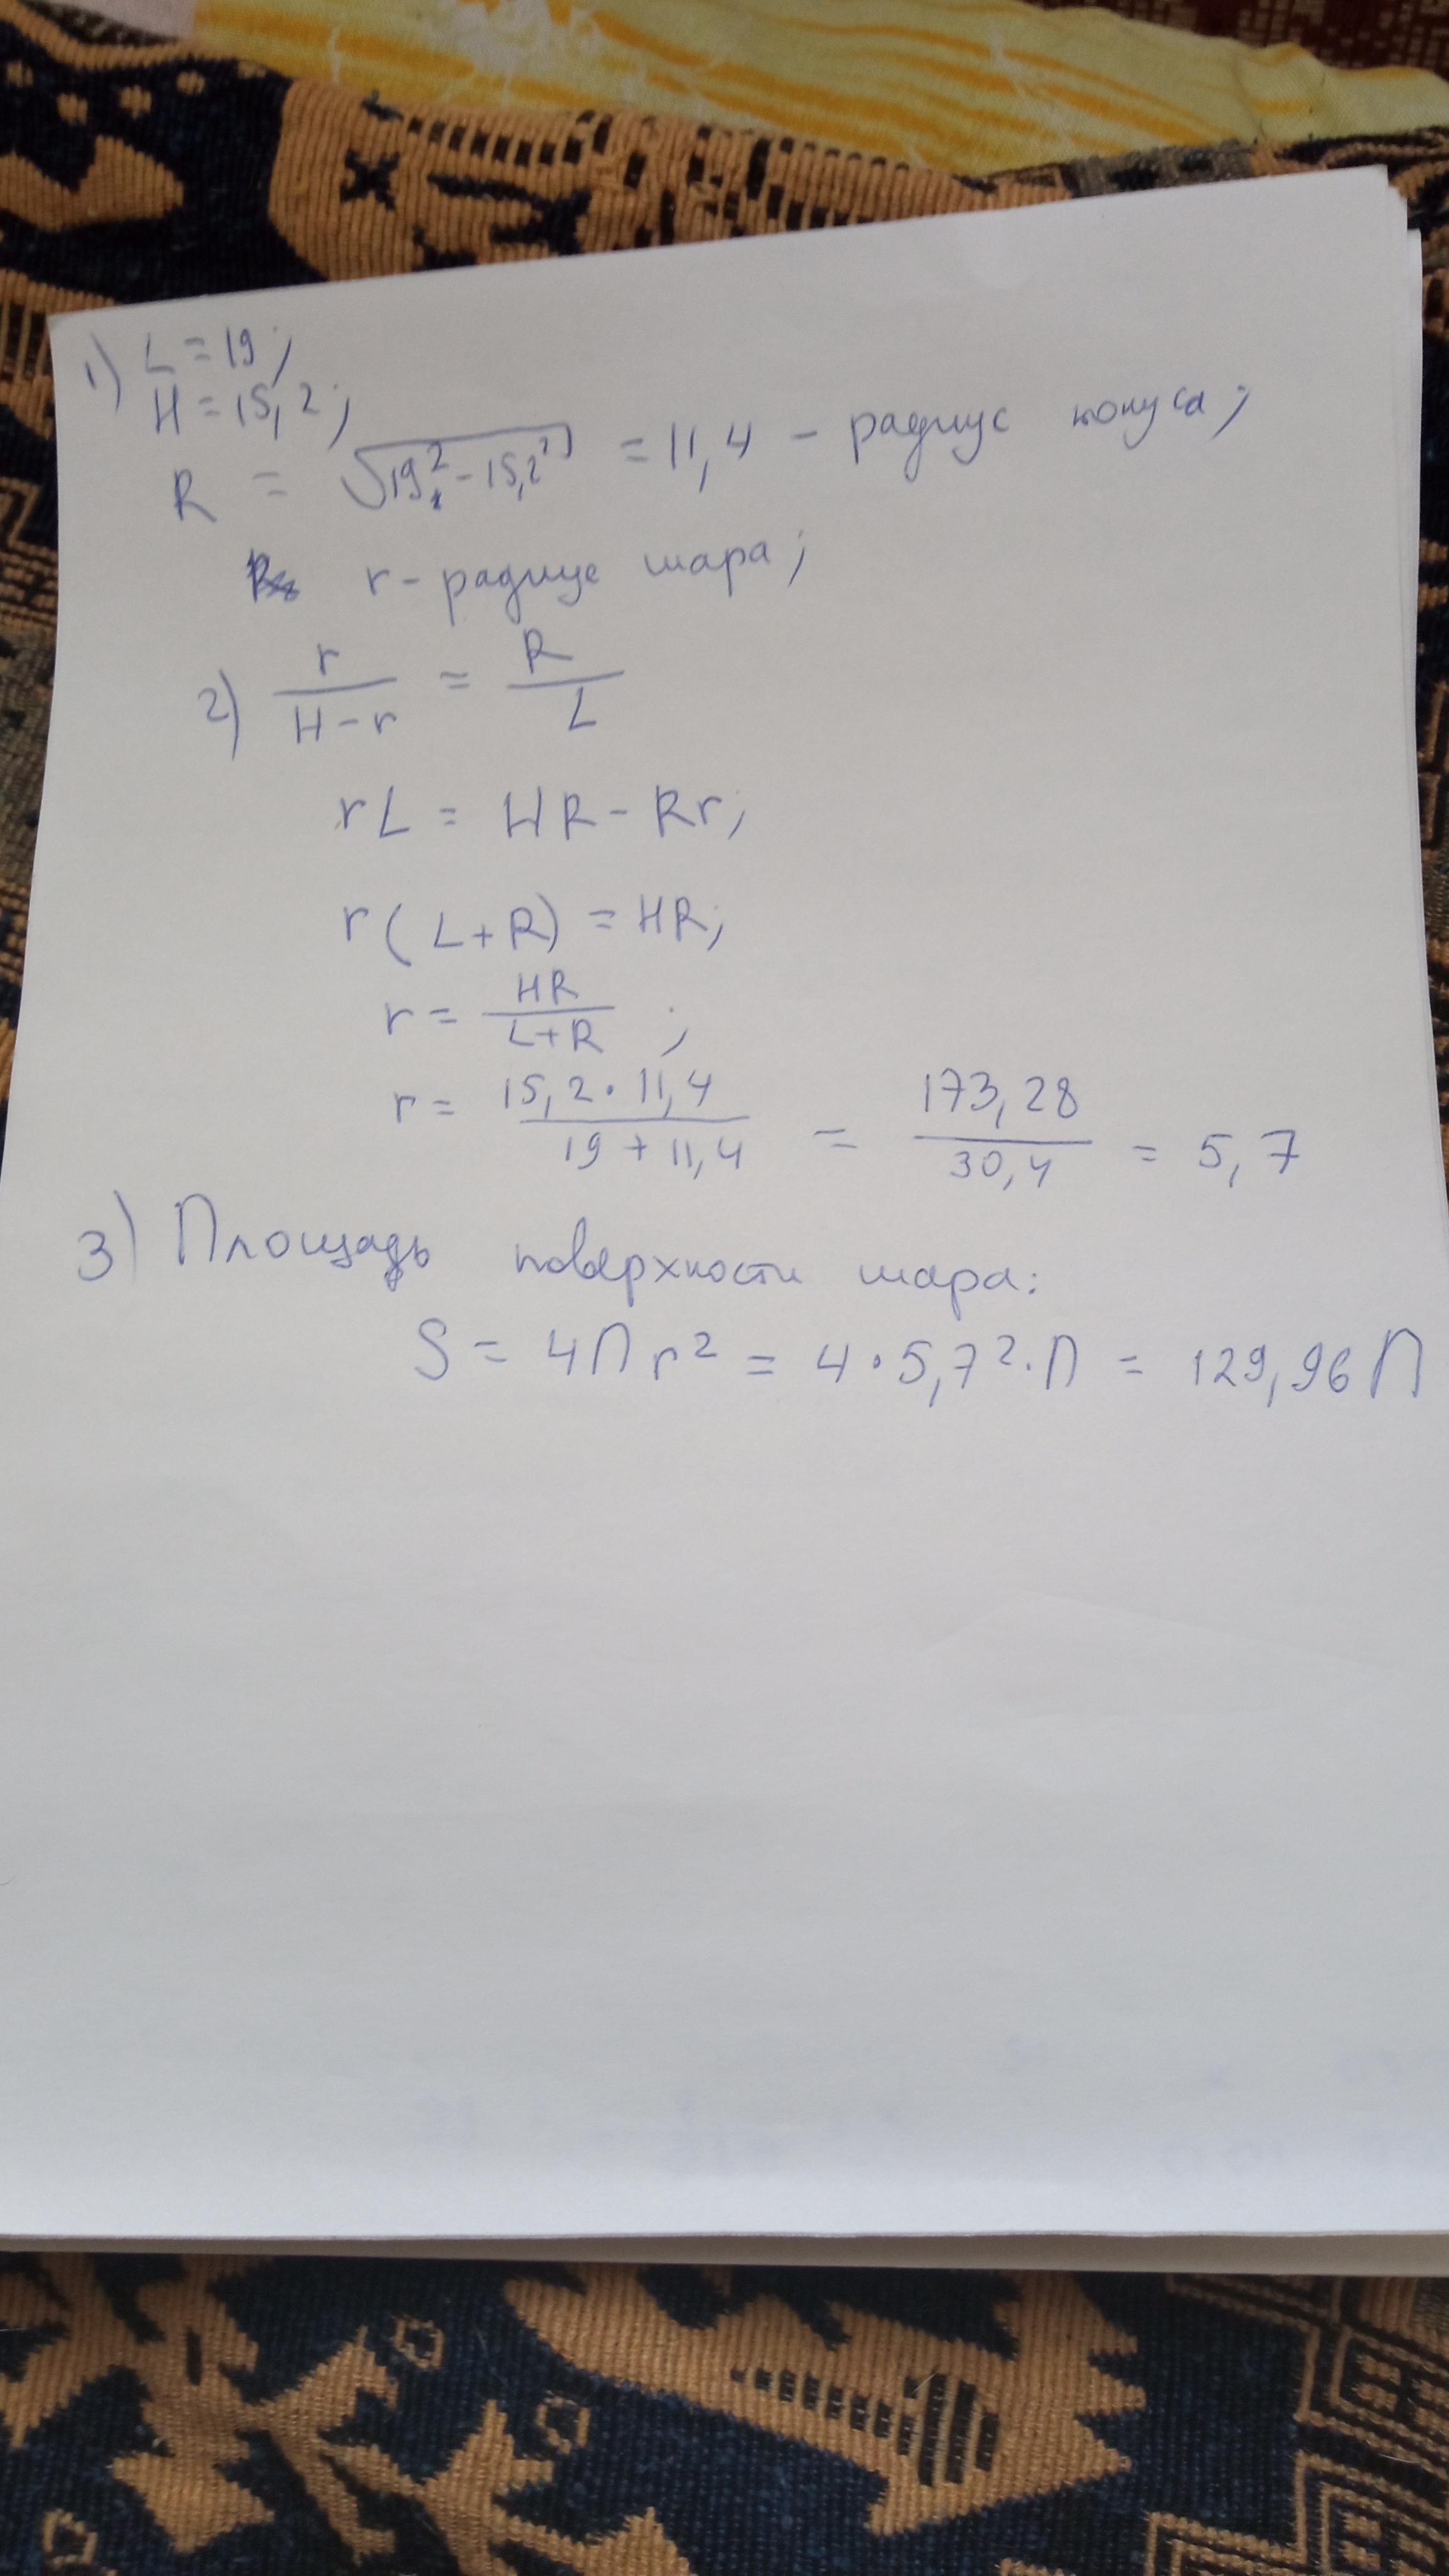 1) L = 19;
H = 15,2;
R = √(19² - 15,2²) = 11,4 - радиус конуса;
r - радиус шара;
2) r/(H - r) = R/L
rL = HR - Rr;
r(L + R) = HR;
r = HR/(L+R);
r = (15,2 · 11,4)/(19 + 11,4) = 173,28/30,4 = 5,7
3) Площадь поверхности шара:
S = 4П r² = 4 · 5,7² · П = 129,96 П